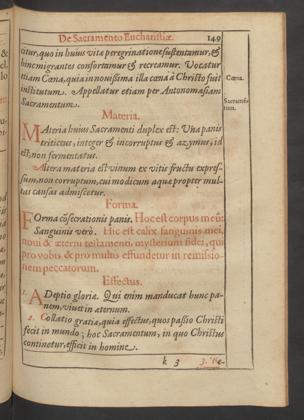 De Sacramento Eucharistiæ. 149
citur, quo in huius vitæ peregrinatione sustentamur, &
hinc migrantes confortamur & recreamur. Vocatur
etiam Cœna, quia in nouissima illa cœna à Christo fuit
institutum. Appellatur etiam per Antonomasiam
Sacramentum.
Cœna.
Sacramentum.
Materia.
MAteria huius Sacramenti duplex est: Vna panis
triticeus, integer & incorruptus & azymus, id
est, non fermentatus.
Altera materia est vinum ex vitis fructu expres-
sum, non corruptum, cui modicum aquæ propter mul-
tas causas admiscetur.
Forma.
FOrma cõsecrationis panis. Hoc est corpus meũ:
Sanguinis verò. Hic est calix sanguinis mei,
noui & æterni testamenti, mysterium fidei, qui
pro vobis & pro multis effundetur in remissio-
nem peccatorum.
Effectus.
1. ADeptio gloriæ. Qui enim manducat hunc pa-
nem, viuet in æternum.
2. Collatio gratiæ, quia effectus, quos passio Christi
fecit in mundo; hoc Sacramentum, in quo Christus
continetur, efficit in homine.
k 3